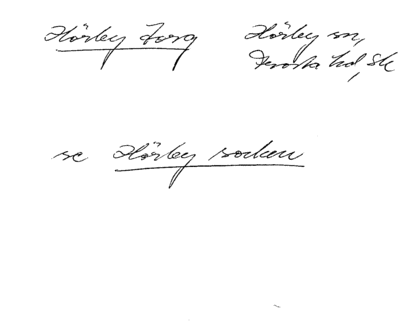 Hörby Torg Hörby sn,
Frosta hd, Sk
se Hörby socken